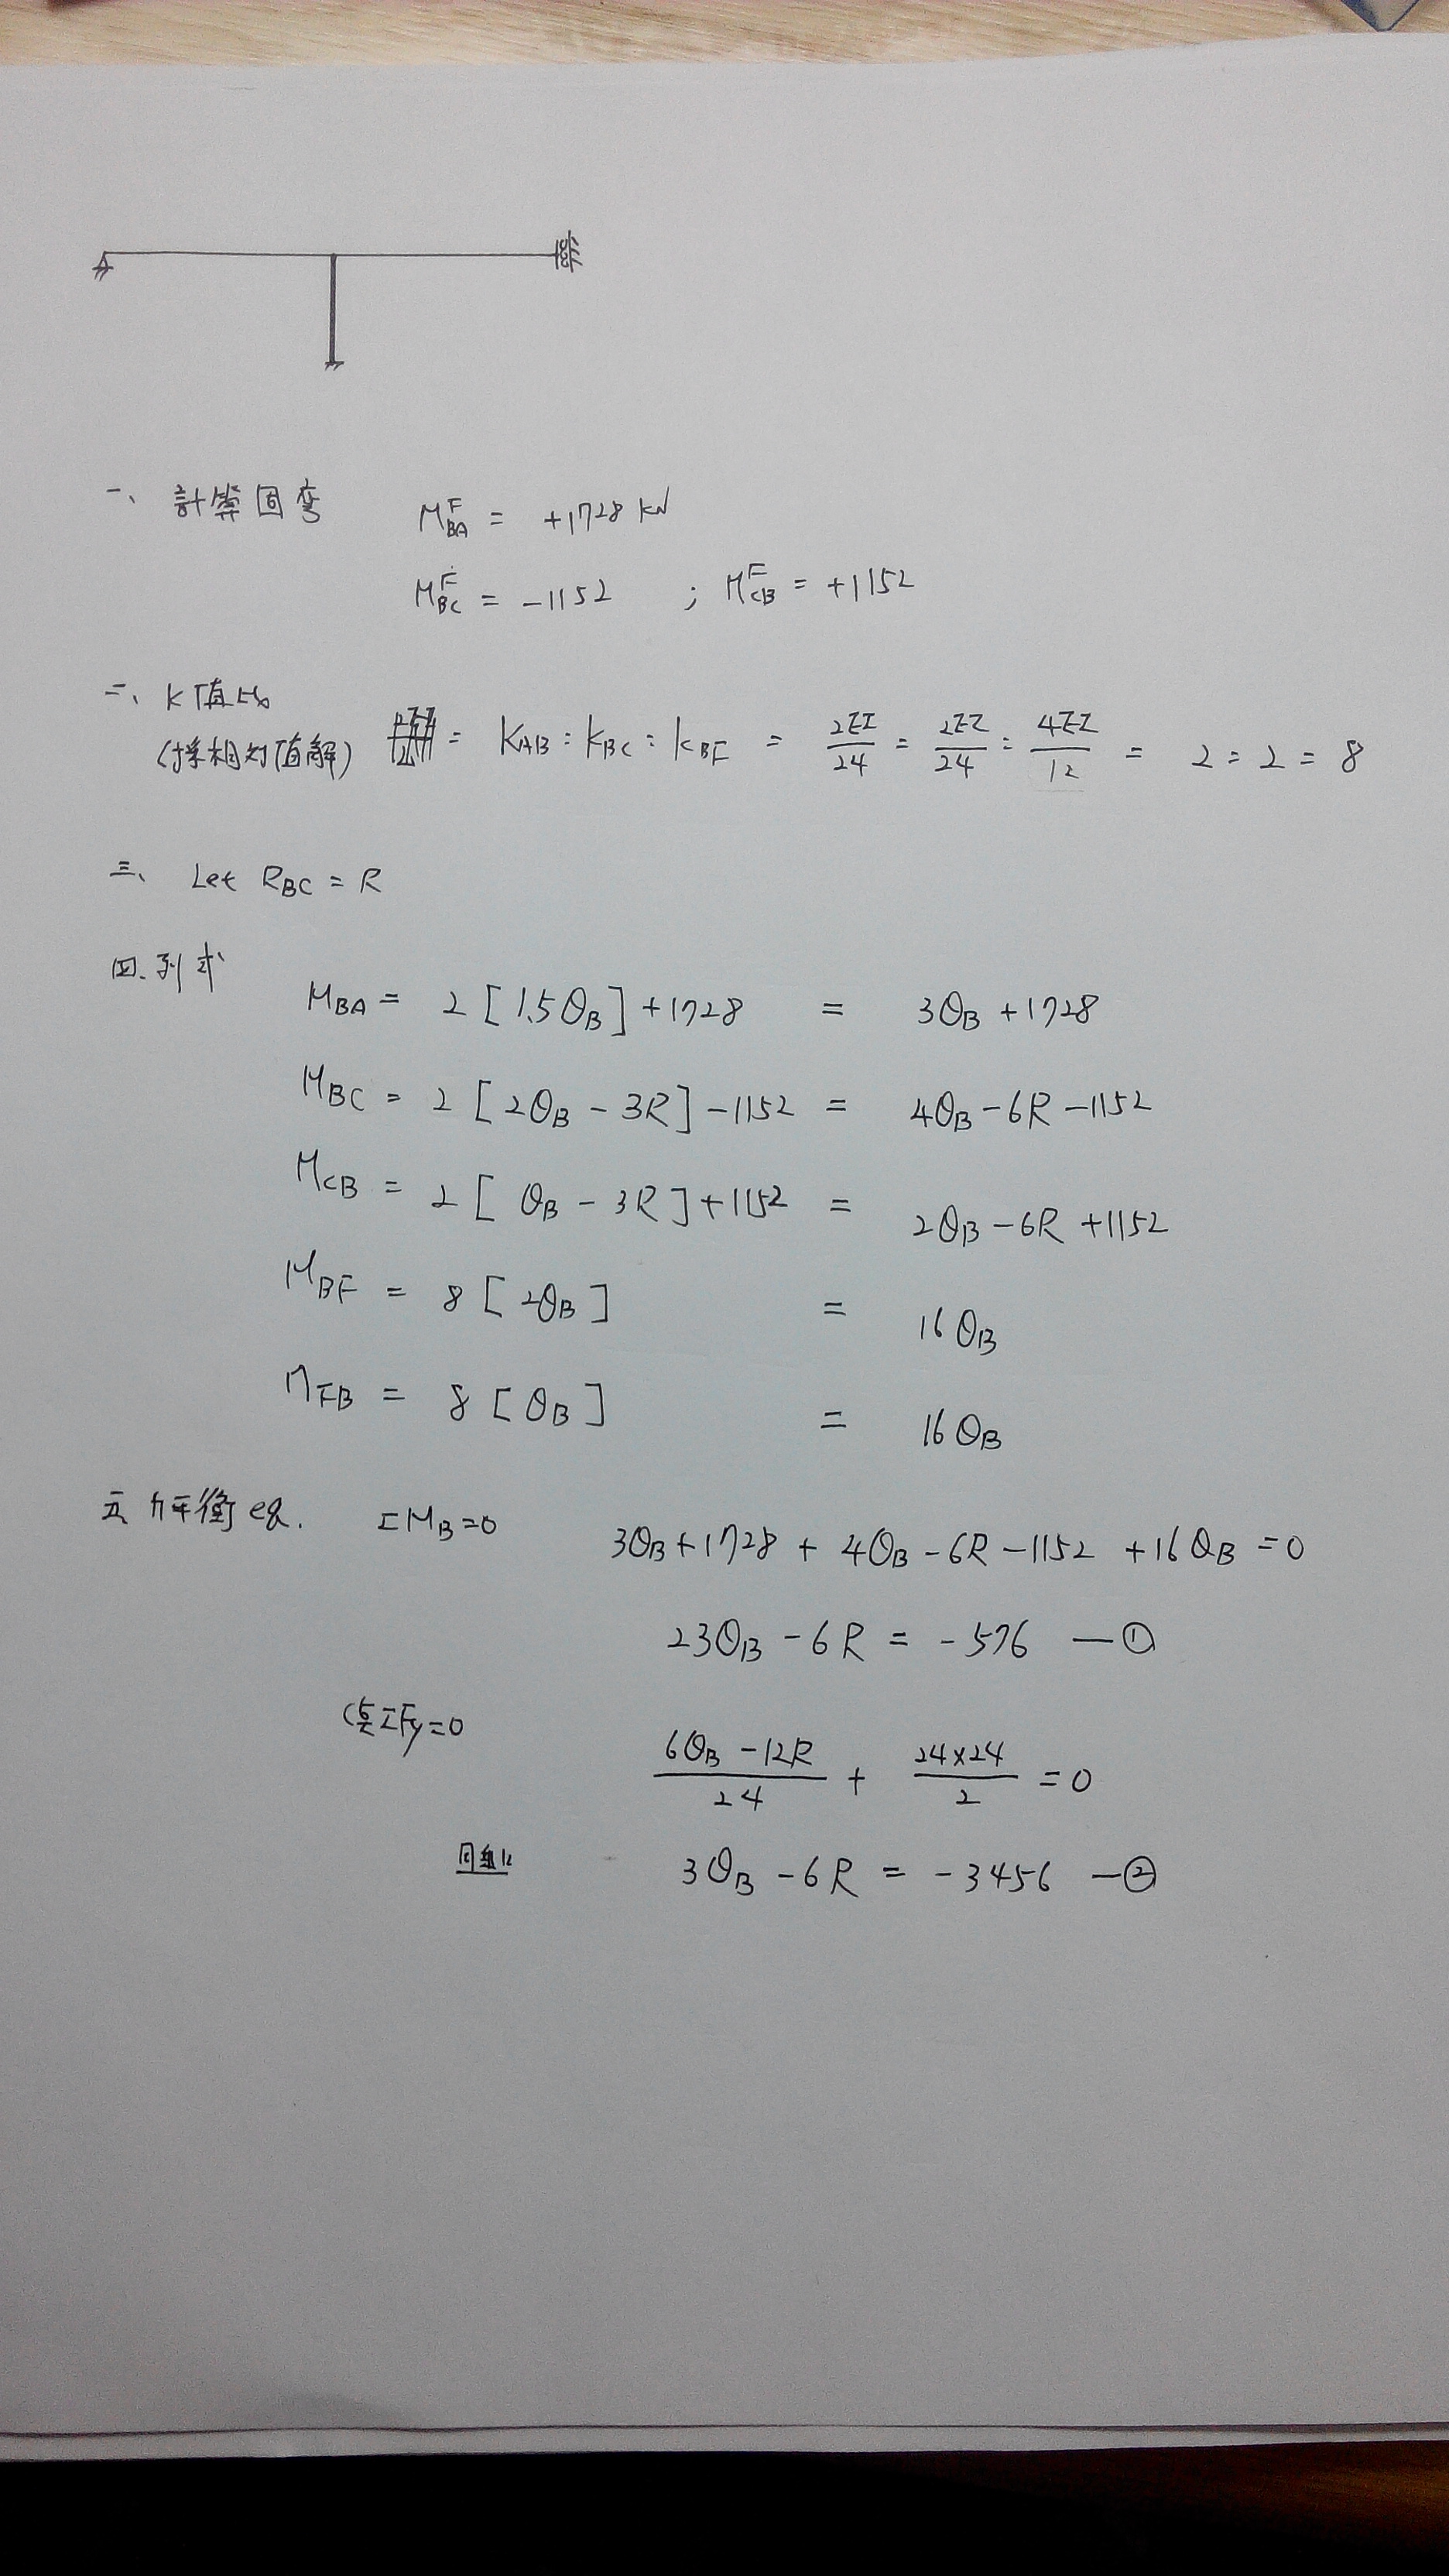 一、計算固彎 M^F_BA = +1728 kN
M^F_BC = -1152 ; M^F_CB = +1152
二、K值比
(採相對值解) = K_AB : K_BC : K_BF = 2EI/24 = 2EI/24 : 4EI/12 = 2 : 2 = 8
三、 Let R_BC = R
四.列式
M_BA = 2 [ 1.5θ_B ] + 1728 = 3θ_B + 1728
M_BC = 2 [ 2θ_B - 3R ] - 1152 = 4θ_B - 6R - 1152
M_CB = 2 [ θ_B - 3R ] + 1152 = 2θ_B - 6R + 1152
M_BF = 8 [ 2θ_B ] = 16θ_B
M_FB = 8 [ θ_B ] = 16θ_B
五、力平衡 eq. ΣM_B=0 3θ_B + 1728 + 4θ_B - 6R - 1152 + 16θ_B = 0
23θ_B - 6R = -576 —①
ΣFy=0 (6θ_B - 12R)/24 + (24×24)/2 = 0
3θ_B - 6R = -3456 —②